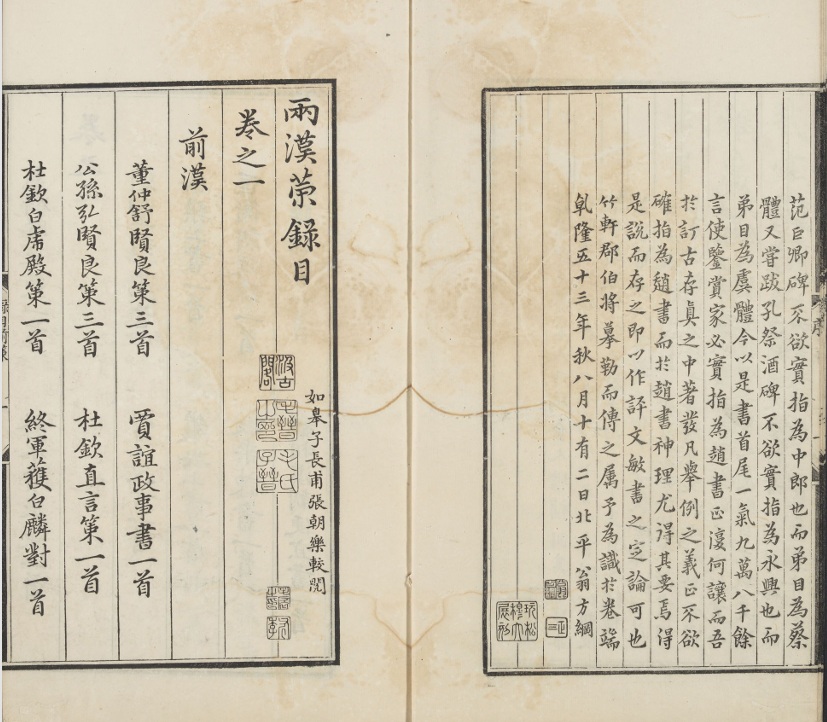 范巨卿碑不欲實指為中郎也而弟目為蔡
體又嘗跋孔祭酒碑不欲實指為永興也而
弟目為虞體今以是書首尾一氣九萬八千餘
言使鑒賞家必實指為趙書正復何讓而吾
於訂古存真之中著發凡舉例之義正不欲
確指為趙書而於趙書神理尤得其要焉得
是說而存之即以作評文敏書之定論可也
竹軒郡伯將摹勒而傳之属予為識於卷端
乹隆五十三年秋八月十有二日北平翁方綱
兩漢策録目
如皋子長甫張朝樂較閱
汲古閣
毛氏子晉
卷之一
前漢
董仲舒賢良策三首 賈誼政事書一首
公孫弘賢良策三首 杜欽直言策一首
杜欽白虎殿策一首 終軍獲白麟對一首